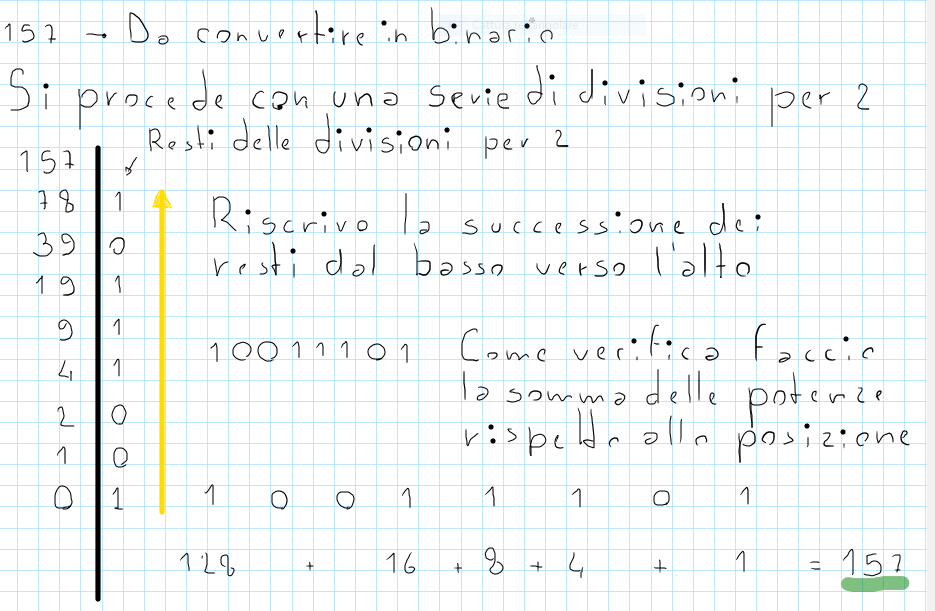 157 → Da convertire in binario
Si procede con una serie di divisioni per 2
Resti delle divisioni per 2
157
78 1
39 0
19 1
9 1
4 1
2 0
1 0
0 1
Riscrivo la successione dei
resti dal basso verso l'alto
10011101
Come verifica faccio
la somma delle potenze
rispetto alla posizione
1 0 0 1 1 1 0 1
128 + 16 + 8 + 4 + 1 = 157